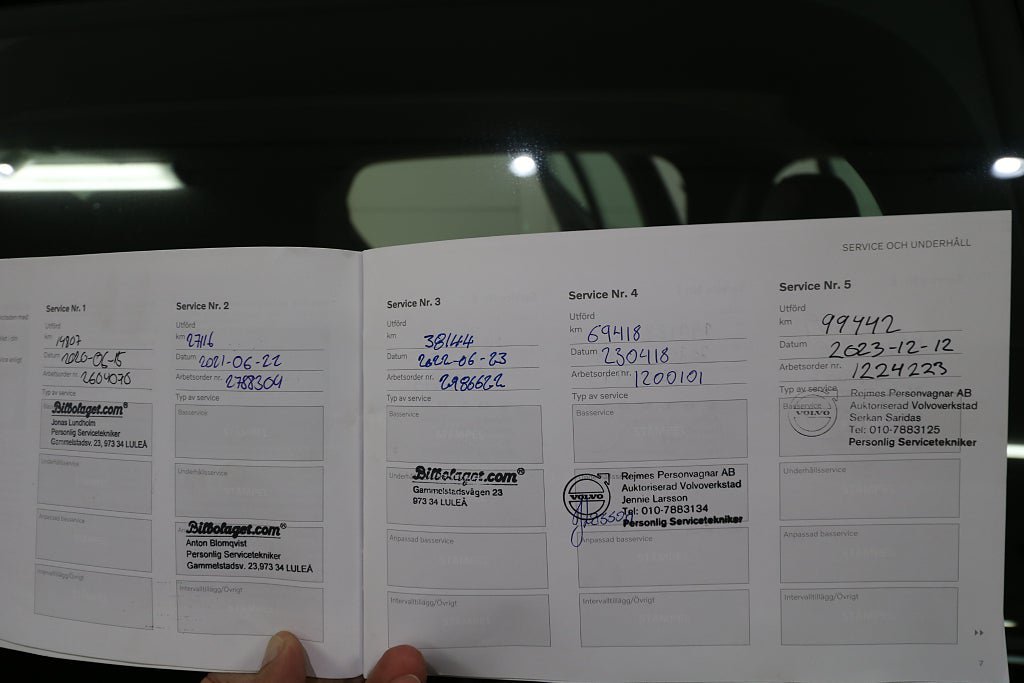 SERVICE OCH UNDERHÅLL
Service Nr. 1
Utförd
km 14807
Datum 2020-06-15
Arbetsorder nr. 2604070
Typ av service
Bilbolaget.com®
Jonas Lundholm
Personlig Servicetekniker
Gammelstadsv. 23, 973 34 LULEÅ
Underhållsservice
Anpassad basservice
Intervalltillägg/Övrigt
Service Nr. 2
Utförd
km 27116
Datum 2021-06-22
Arbetsorder nr. 2788304
Typ av service
Basservice
STÄMPEL
Underhållsservice
Bilbolaget.com®
Anton Blomqvist
Personlig Servicetekniker
Gammelstadsv. 23,973 34 LULEÅ
Intervalltillägg/Övrigt
STÄMPEL
Service Nr. 3
Utförd
km 38144
Datum 2022-06-23
Arbetsorder nr. 2986622
Typ av service
Basservice
STÄMPEL
Bilbolaget.com®
Gammelstadsvägen 23
973 34 LULEÅ
Anpassad basservice
STÄMPEL
Intervalltillägg/Övrigt
STÄMPEL
Service Nr. 4
Utförd
km 69418
Datum 230418
Arbetsorder nr. 1200101
Typ av service
Basservice
STÄMPEL
VOLVO
Rejmes Personvagnar AB
Auktoriserad Volvoverkstad
Jennie Larsson
Tel: 010-7883134
Personlig Servicetekniker
Anpassad basservice
Intervalltillägg/Övrigt
STÄMPEL
Service Nr. 5
Utförd
km 99442
Datum 2023-12-12
Arbetsorder nr. 1224223
Typ av service
Basservice
VOLVO
Rejmes Personvagnar AB
Auktoriserad Volvoverkstad
Serkan Saridas
Tel: 010-7883125
Personlig Servicetekniker
Underhållsservice
Anpassad basservice
STÄMPEL
Intervalltillägg/Övrigt
STÄMPEL
7